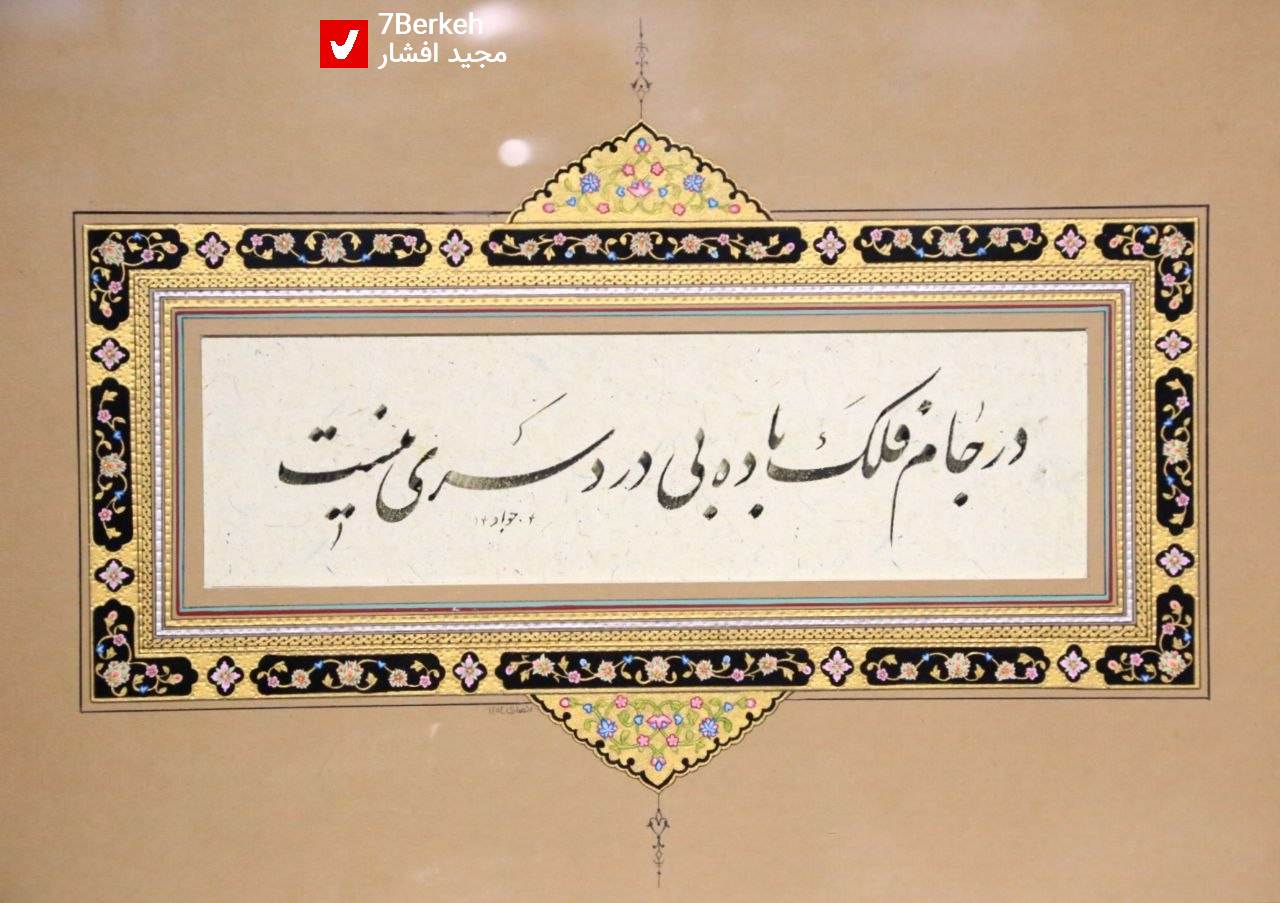 7Berkeh
مجید افشار
در جام فلک باده بی دردسری نیست
جواد